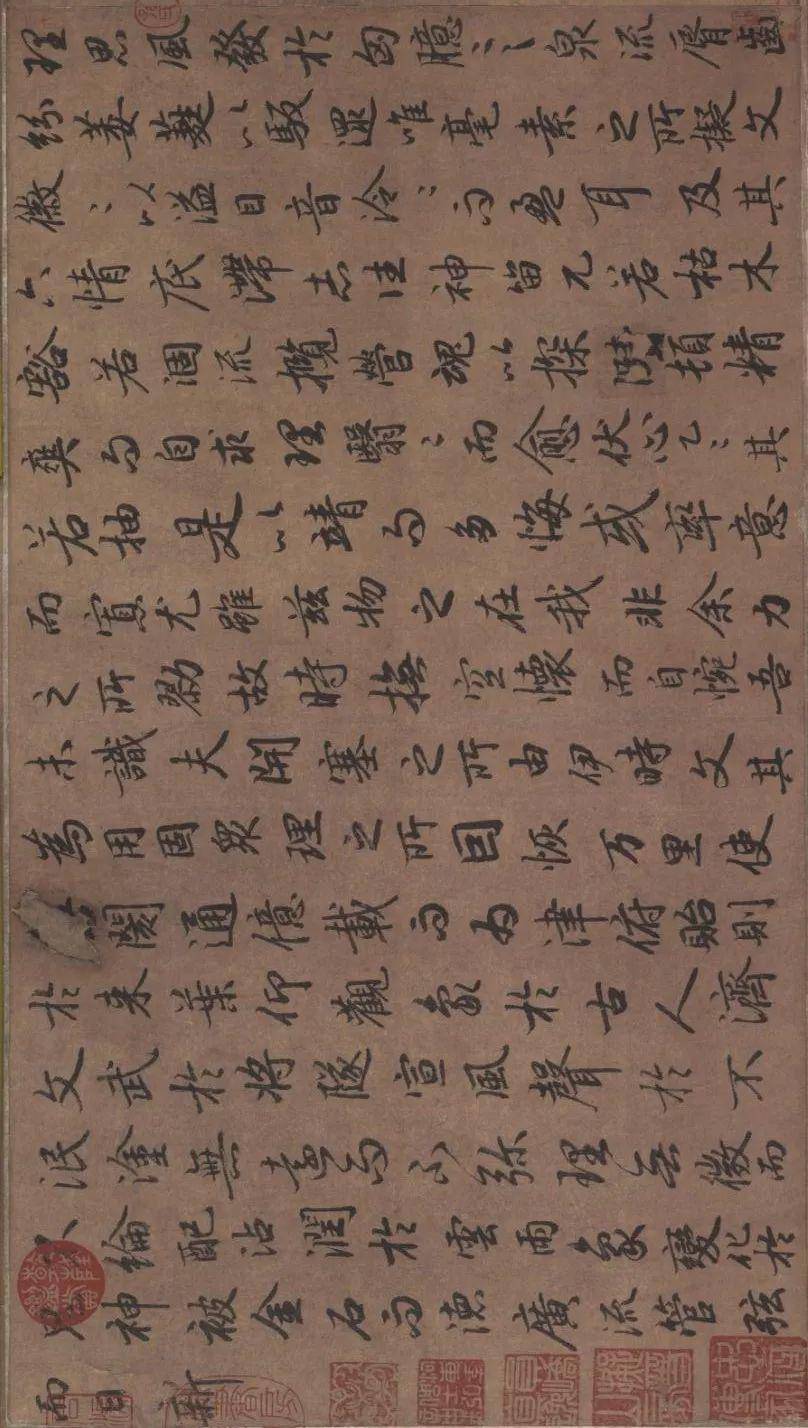 理思風發於匈臆言泉流脣齒
紛萎蕤以馺遝唯毫素之所擬文
徽〻以溢目音泠〻而盈耳及其
六情底滯志往神留兀若枯木
豁若涸流攬營魂以探賾頓精
爽而自求理翳〻而愈伏心乙〻其
若抽是以靖而多悔或率意
而寡尤雖茲物之在我非余力
之所勠故時撫空懷而自惋吾
未識夫開塞之所由伊時文其
為用固眾理之所因恢万里使
閡通億載而為津俯貽則
於来葉仰觀象於古人濟
文武於將隊宣風聲於不
泯塗無遠而不弥理無微而
不綸配沾潤於雲雨象變化於
鬼神被金石而德廣流管弦
而日新